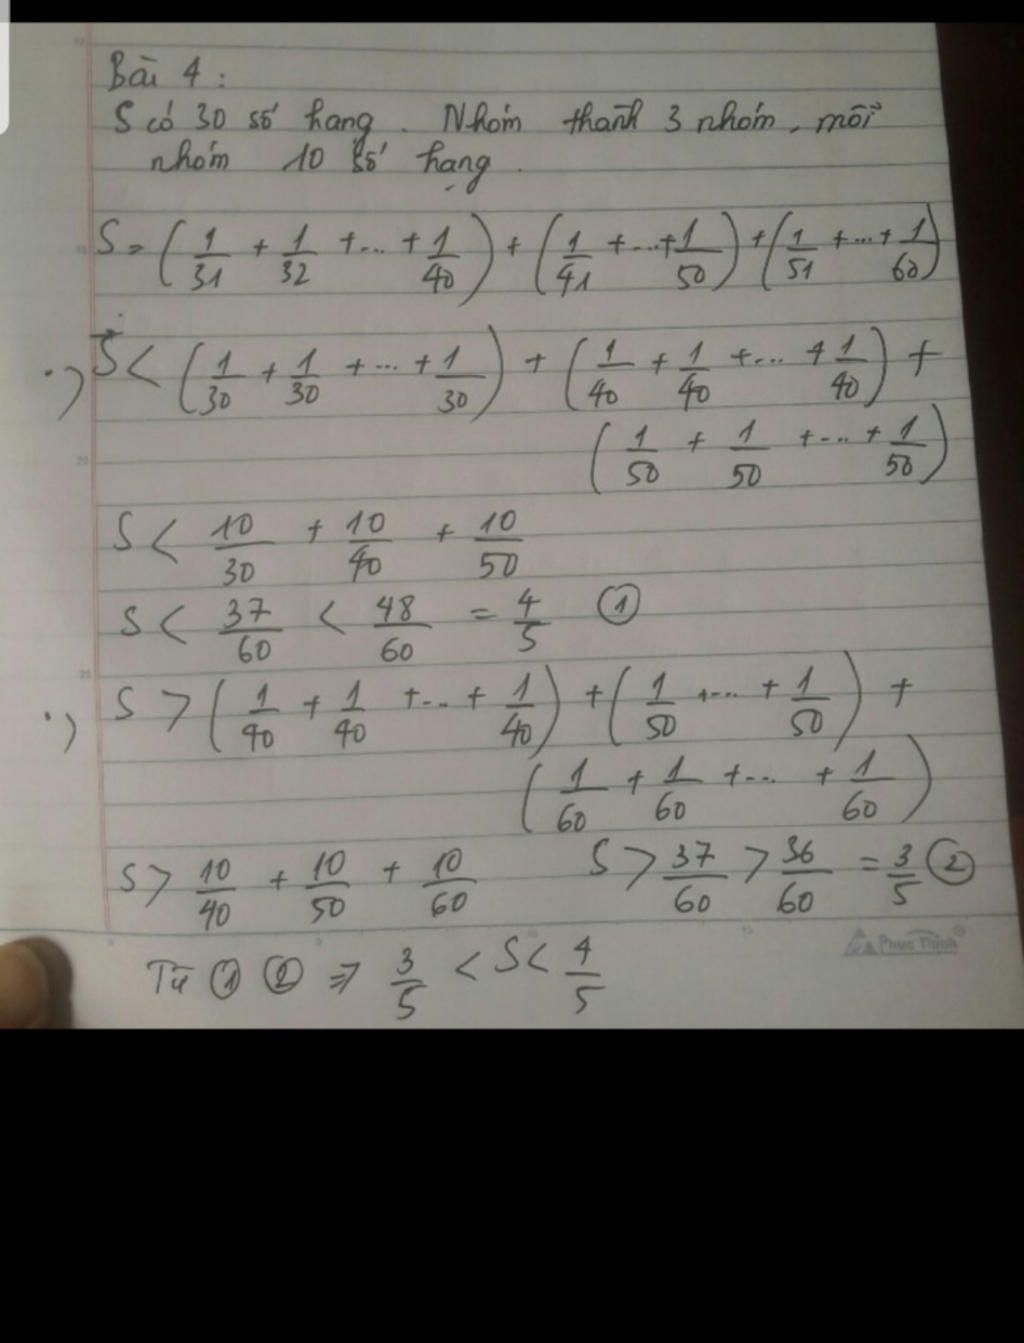 Bài 4 :
S có 30 số hạng . Nhóm thành 3 nhóm, mỗi
nhóm 10 số hạng .
S = (1/31 + 1/32 + ... + 1/40) + (1/41 + ... + 1/50) + (1/51 + ... + 1/60)
·) S < (1/30 + 1/30 + ... + 1/30) + (1/40 + 1/40 + ... + 1/40) +
(1/50 + 1/50 + ... + 1/50)
S < 10/30 + 10/40 + 10/50
S < 37/60 < 48/60 = 4/5 ①
·) S > (1/40 + 1/40 + ... + 1/40) + (1/50 + ... + 1/50) +
(1/60 + 1/60 + ... + 1/60)
S > 10/40 + 10/50 + 10/60 S > 37/60 > 36/60 = 3/5 ②
Từ ① ② => 3/5 < S < 4/5
Phuc Thinh